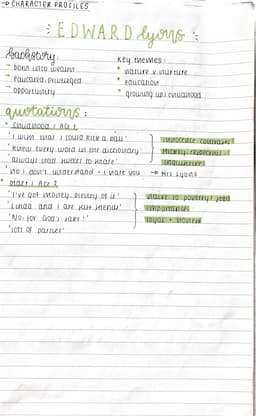 → CHARACTER PROFILES
EDWARD Lyons
backstory:
- born into wealth
- educated, privileged
- opportunity
Key themes:
* nature v nurture
* education
* growing up / childhood
quotations:
* Childhood / Act 1
'I wish that I could kick a ball'
'every word in the dictionary'
'always had sweets to share'
'no I don't understand - I hate you' → Mrs Lyons
* older / Act 2
'I've got money, plenty of it'
'Linda and I are just friends'
'No! for God's sake!'
'lots of parties'
innocence contrasts
Mickey
naive to poverty / job
importance
loyal +